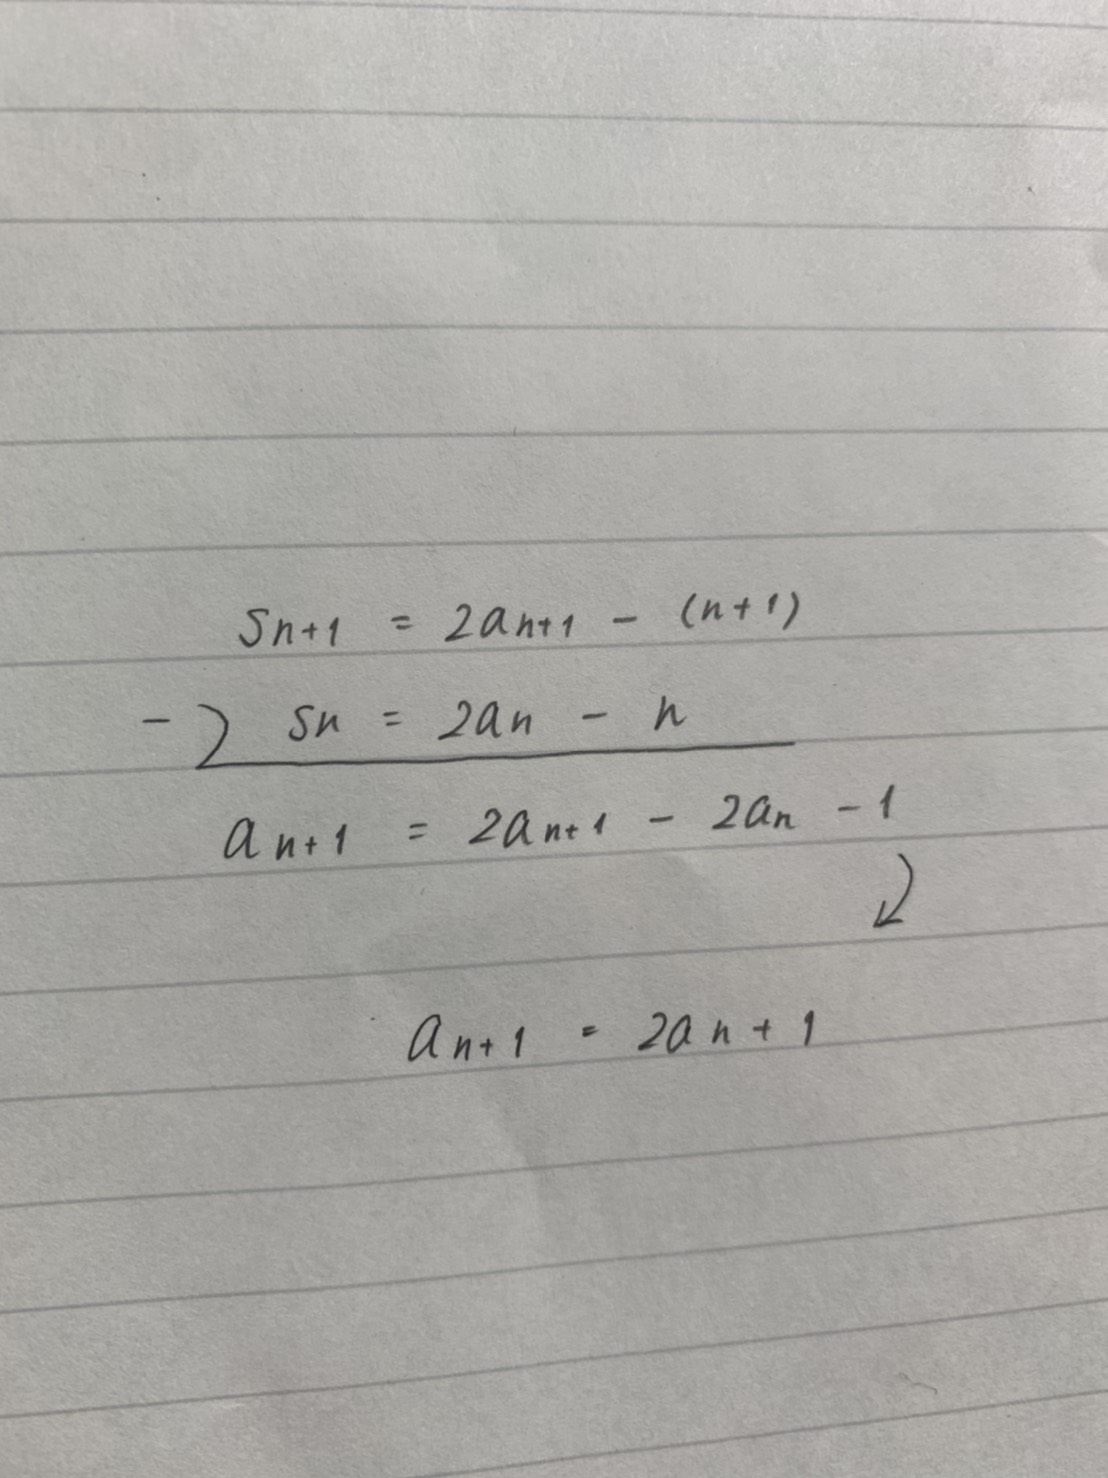 Sn+1 = 2an+1 - (n+1)
-) Sn = 2an - n
an+1 = 2an+1 - 2an - 1
an+1 = 2an + 1